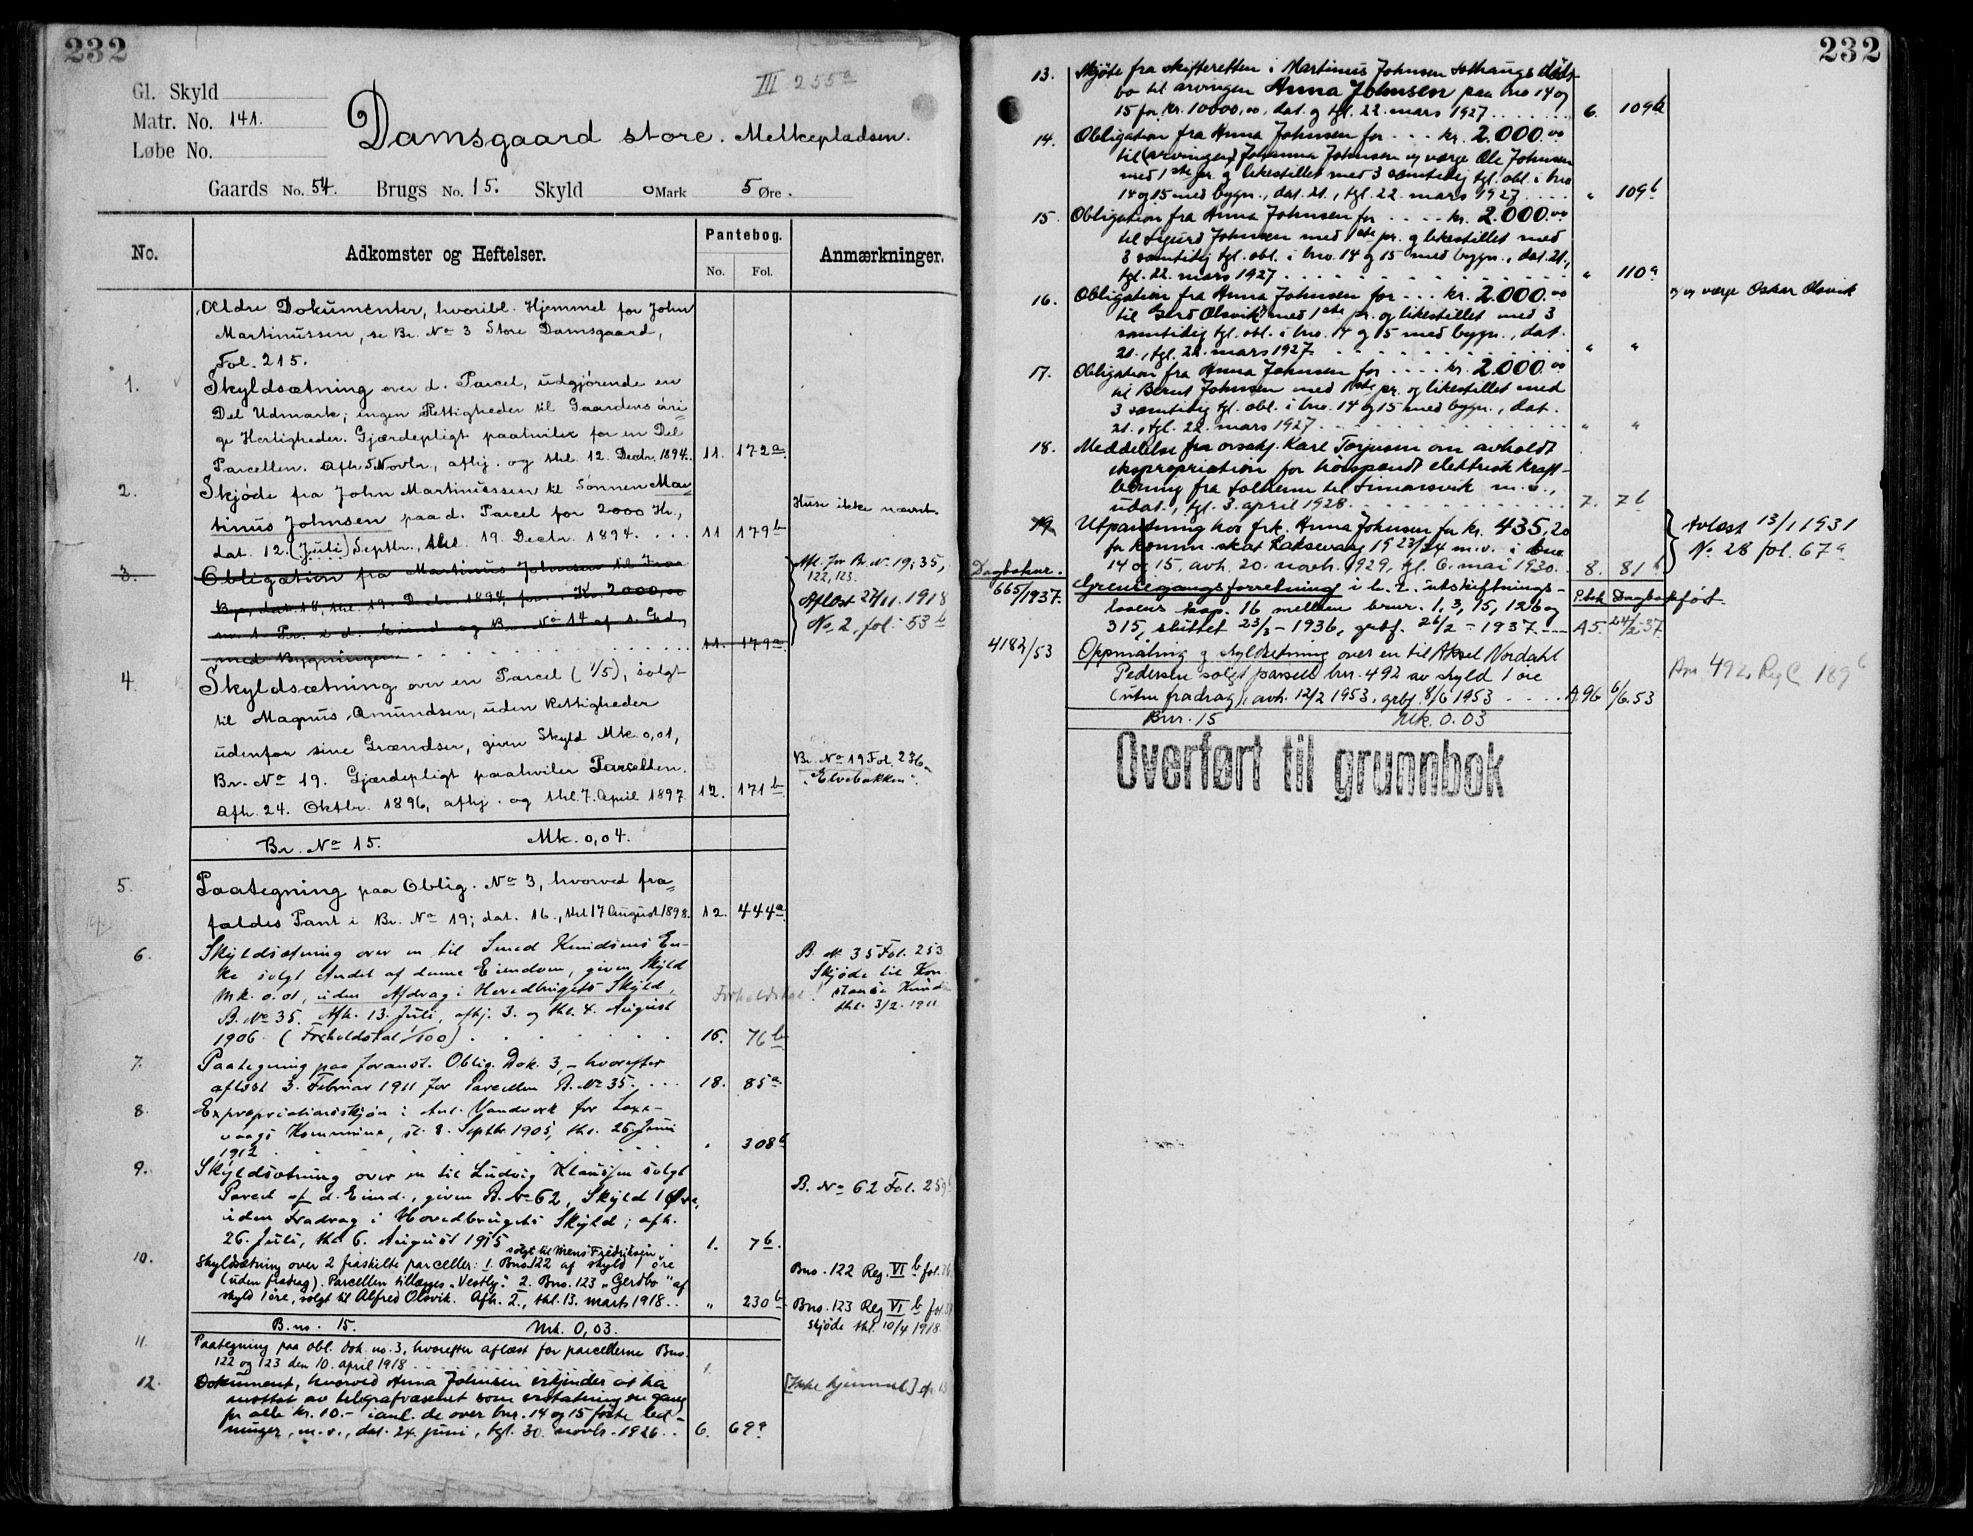 232
III 255a
Gl. Skyld
Matr. No. 141.
Løbe No.
Damsgaard store. Melkepladsen.
Gaards No. 54. Brugs No. 15. Skyld 0 Mark 5 Øre.
No. Adkomster og Heftelser. Pantebog. No. Fol. Anmærkninger.
Ældre Dokumenter, hvoribl. Hjemmel for John
Martinussen, se Br. No 3 Store Damsgaard,
Fol. 215.
1. Skyldsætning over d. Parcel, udgjørende en
Del Udmark; ingen Rettigheder til Gaardens øvri-
ge Herligheder. Gjærdepligt paahviler for en Del
Parcellen. Afh. 5 Novbr., afhj. og thl. 12. Decbr. 1894. 11. 172a
2. Skjøde fra John Martinussen til Sønnen Mar-
tinus Johnsen paa d. Parcel for 2000 Kr.,
dat. 12. (Juli) Septbr., thl. 19. Decbr. 1894. . . . 11 179b
Huse ikke nævnt.
3. Obligation fra Martinus Johnsen til
dat. 18, thl. 19. Decbr. 1894, for Kr. 2000,00
m. 1. Pr. i d. Eiend. og Br. No 14 af s. Gd.
med Bygninger 11. 179a
Afl. for Br. No. 19, 35,
122, 123.
Aflæst 27/11. 1918
No. 2, fol. 53b
4. Skyldsætning over en Parcel (1/5), solgt
til Magnus Amundsen, uden Rettigheder
udenfor sine Grændser, given Skyld Mk. 0,01,
Br. No 19. Gjærdepligt paahviler Parcellen.
Afh. 24. Oktbr. 1896, afhj. og thl. 7. April 1897 12. 171b
Br. No 19 Fol. 236
"Elvebakken".
Br. No 15. Mk. 0,04.
5. Paategning paa Oblig. No 3, hvorved fra-
faldes Pant i Br. No 19; dat. 16., thl 17 August 1898. 12. 444a
6. Skyldsætning over en til Smed Knudsens En-
ke solgt Andel af denne Eiendom, given Skyld
Mk. 0.01, uden Afdrag i Hovedbrugets Skyld,
B. No 35. Afh. 13. Juli, afhj. 3. og thl. 4. August
1906. (Forholdstal 1/100) 16. 76b
Forholdstal!
B. No 35 Fol. 253
Skjøde til Kon
stanse
thl. 3/2. 1911
7. Paategning paa foranst. Oblig. Dok. 3, - hvorefter
aflæst 3. Februar 1911 for Parcellen B. No 35. . . . 18. 85a
8. Expropriationsskjøn i Anl. Vandverk for Laxe-
vaags Kommune, sl. 8. Septbr. 1905, thl. 26. Juni
1912 " 308b
9. Skyldsætning over en til Ludvig Klaussen solgt
Parcel af d. Eiend., given B. No 62, Skyld 1 Øre,
uden Fradrag i Hovedbrugets Skyld; afh.
26. Juli, thl. 6. August 1915 1. 7b.
B. No 62 Fol. 259
10. Skyldsætning over 2 fraskilte parceller: 1. Bno. 122 af skyld 1 øre
solgt til Mons Fredriksen
(uden fradrag). Parcellen tillægges "Vestly". 2. Bno. 123 "Gerdbo" af
skyld 1 øre, solgt til Alfred Olsvik. Afh. 2., thl. 13. marts 1918 . . " 230b
Bno. 122 Reg. VI b fol.
Bno. 123 Reg VI b fol
Skjøde thl. 10/4 1918.
B.no. 15. Mk. 0,03.
11. Paategning paa obl. dok. no. 3, hvorefter aflæst for parcellerne Bno.
122 og 123 den 10. april 1918 1.
12. Dokument, hvorved Anna Johnsen erkjender at ha
mottat av telegrafvæsenet som erstatning en gang
for alle kr. 10.- i anl. de over bnr. 14 og 15 førte led-
ninger, m.v., dat. 24. juni, tgl. 30. novbr. 1926 . . 6. 69a
[Ikke hjemmel]
232
13. Skjøte fra skifteretten i Martinus Johnsen Solhaugs døds-
bo til arvingen Anna Johnsen paa bno 14 og
15 for kr. 10000,00, dat. og tgl. 22. mars 1927 . . . . . . 6. 109a
14. Obligation fra Anna Johnsen for . . . kr. 2.000.00
til (arvingen) Johanna Johnsen og værge Ole Johnsen
med 1ste pr. og likestillet med 3 samtidig tgl. obl. i bno
14 og 15 med bygn., dat. 21., tgl. 22. mars 1927 . . . . " 109b
15. Obligation fra Anna Johnsen for . . . . kr. 2.000.00
til Sigurd Johnsen med 1ste pr. og likestillet med
3 samtidig tgl. obl. i bno. 14 og 15 med bygn., dat. 21.,
tgl. 22. mars 1927 . . . . " 110a
16. Obligation fra Anna Johnsen for . . . kr. 2.000.00
til Gerd Olsvik x) med 1ste pr. og likestillet med 3
samtidig tgl. obl. i bno. 14 og 15 med bygn., dat.
21., tgl. 22. mars 1927. . . . " "
x) og værge Oskar Olsvik
17. Obligation fra Anna Johnsen for . . . . kr. 2.000.00
til Bernt Johnsen med 1ste pr. og likestillet med
3 samtidig tgl. obl. i bno. 14 og 15 med bygn., dat.
21., tgl. 22. mars 1927 . . . . " "
18. Meddelelse fra orsakf. Karl Torjusen om avholdt
ekspropriation for høispændt elektrisk kraft-
ledning fra Solheim til Simarsvik m.v.,
udat., tgl. 3. april 1928 . . . . 7. 7b
19. Utpantning hos frk. Anna Johnsen for kr. 435,20
for komm. skat Laksevaag 1923/24 m.v. i bno
14 og 15, avh. 20. novbr. 1929, tgl. 6. mai 1930. 8. 81b
Avlæst 13/1 1931
No. 28 fol. 67a
Dagboknr. 665/1937. Grensegangsforretning i h. t. utskiftnings-
lovens kap. 16 mellem bnr. 1, 3, 15, 126 og
315, sluttet 23/3 - 1936, grbf. 26/2 - 1937 . - - A5. 24/2 37
P.bok Dagbokført.
4182/53 Oppmåling og skyldsetning over en til Aksel Nordahl
Pedersen solgt parsell bnr. 492 av skyld 1 øre
(uten fradrag), avh. 12/2 1953, grbf. 8/6 1953 . . . . A.96 6/6.53
Bnr 492, Reg C 189b
Bnr. 15 Mk. 0.03
Overført til grunnbok